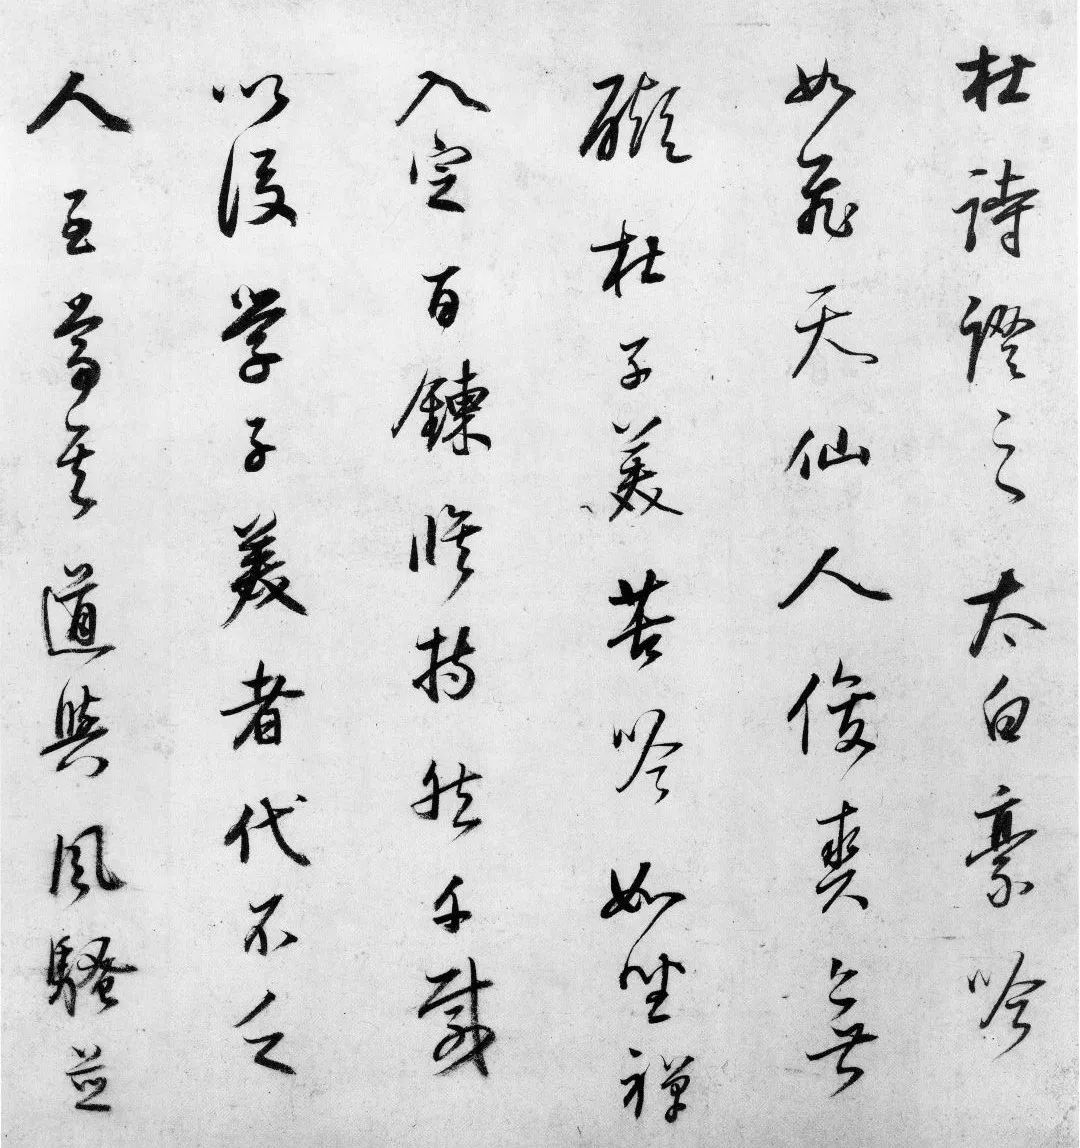 杜詩證之太白豪吟
如飛天仙人俊爽無
礙杜子美苦吟如坐禪
入定百鍊脩持然千載
以後學子美者代不乏
人至尊其道與風騷並